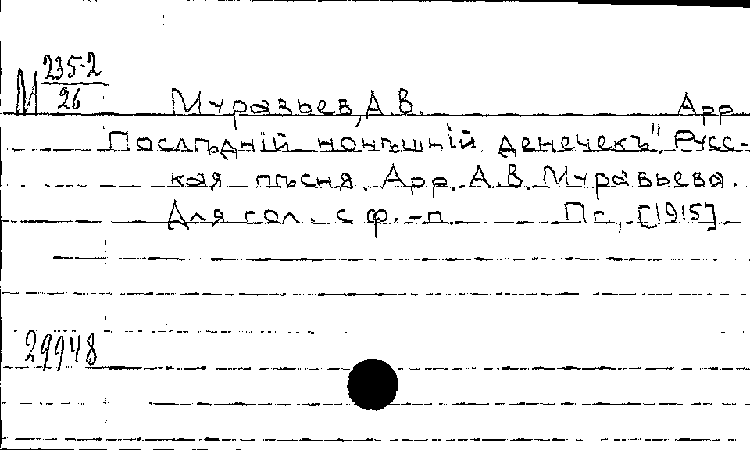 М 235-2
26
Муравьев, А.В. Арр.
Послѣдній нонѣшній денечекъ". Русс-
кая пѣсня. Арр. А.В. Муравьева.
Для гол. с ф.-п. Пг., [1915]
29948